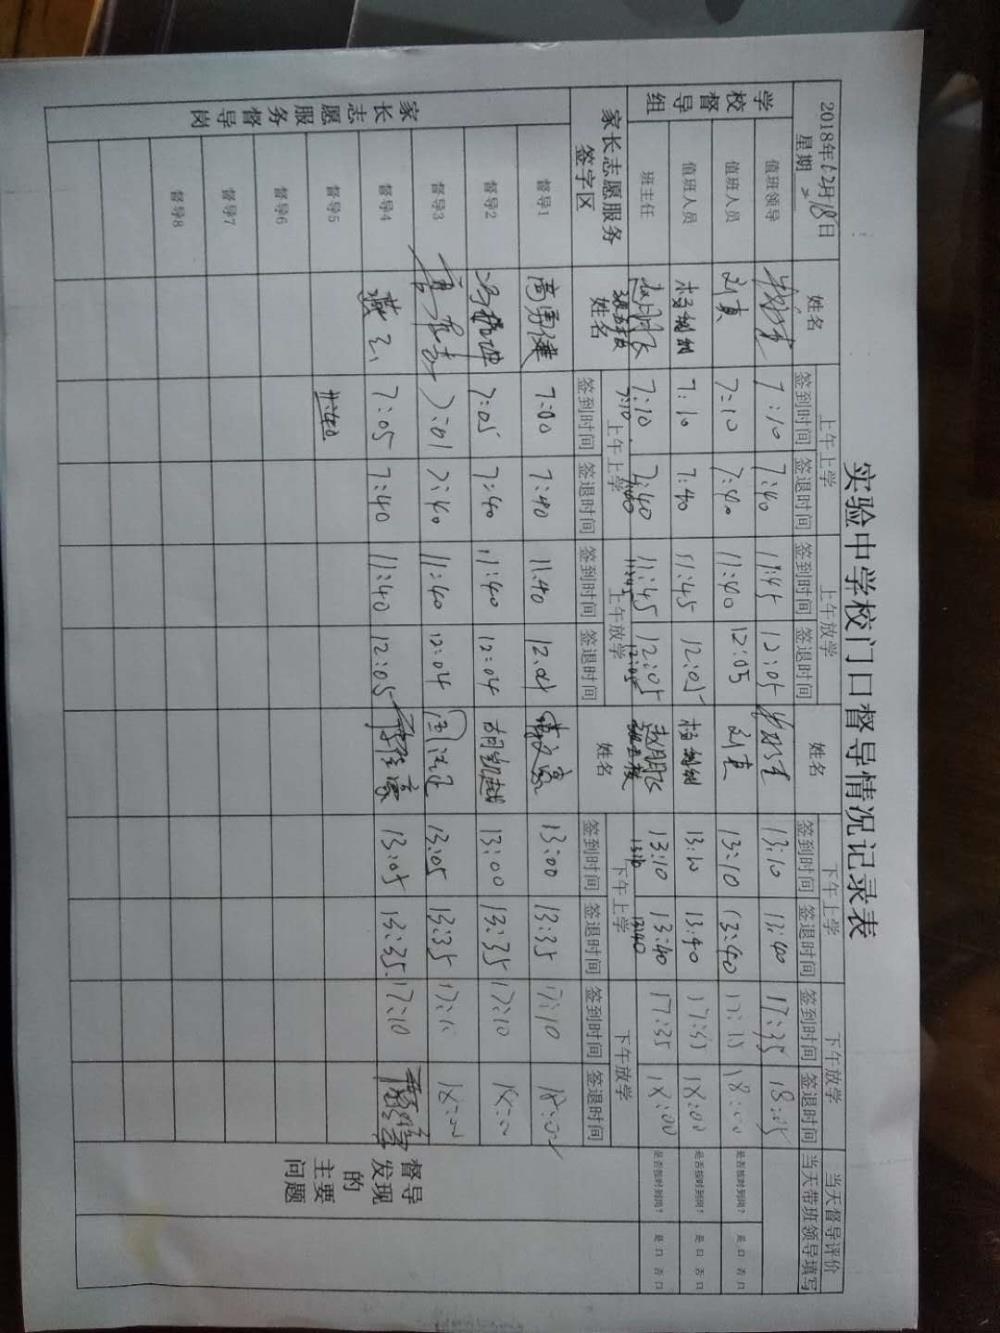 实验中学校门口督导情况记录表
2018年12月18日 星期二 姓名 上午上学 上午放学 姓名 下午上学 下午放学 当天督导评价
签到时间 签退时间 签到时间 签退时间 签到时间 签退时间 签到时间 签退时间 当天带班领导填写
学校督导组
值班领导 7:10 7:40 11:45 12:05 13:10 13:40 17:35 18:05
值班人员 刘真 7:10 7:40 11:40 12:05 刘真 13:10 13:40 18:00 是否按时到岗? 是口 否口
值班人员 7:10 7:40 11:45 12:05 13:10 13:40 17:35 18:00 是否按时到岗? 是口 否口
班主任 7:10 7:40 11:45 12:05 13:10 13:40 17:35 18:00 是否按时到岗? 是口 否口
7:10 7:40 11:45 12:05 13:10 13:40
家长志愿服务签字区 姓名 上午上学 上午放学 姓名 下午上学 下午放学
签到时间 签退时间 签到时间 签退时间 签到时间 签退时间 签到时间 签退时间
家长志愿服务督导岗
督导1 高勇健 7:00 7:40 11:40 12:04 13:00 13:35 17:10 18:02
督导2 7:05 7:40 11:40 12:04 胡凯越 13:00 13:35 17:10
督导3 7:01 7:40 11:40 12:04 13:05 13:35
督导4 7:05 7:40 11:40 12:05 13:05 13:35 17:10
督导5
督导6
督导7
督导8
督导发现的主要问题